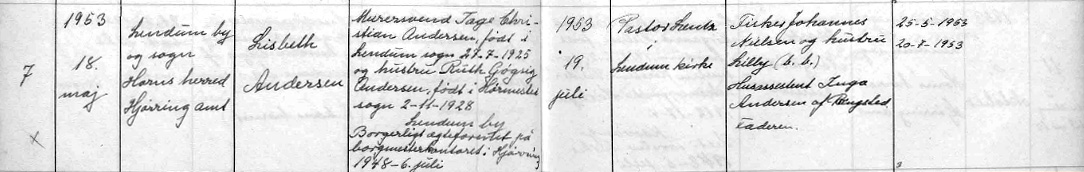 7
×
1953
18.
maj
Lendum by
og sogn
Horns herred
Hjørring amt
Lisbeth
Andersen
Murersvend Tage Chri-
stian Andersen, født i
Lendum sogn 27-7-1925
og hustru Ruth Gøgsig
Andersen, født i Hørmested
sogn 2-11-1928
Lendum by
Borgerligt ægteforenet på
borgmesterkontoret i Hjørring
1948-6. juli
1953
19.
juli
Pastor Lentz
i
Lendum kirke
Johannes
Nielsen og hustru
Lilly (b. b.)
Husassistent Inga
Andersen af
Faderen.
25-5-1953
20-7-1953